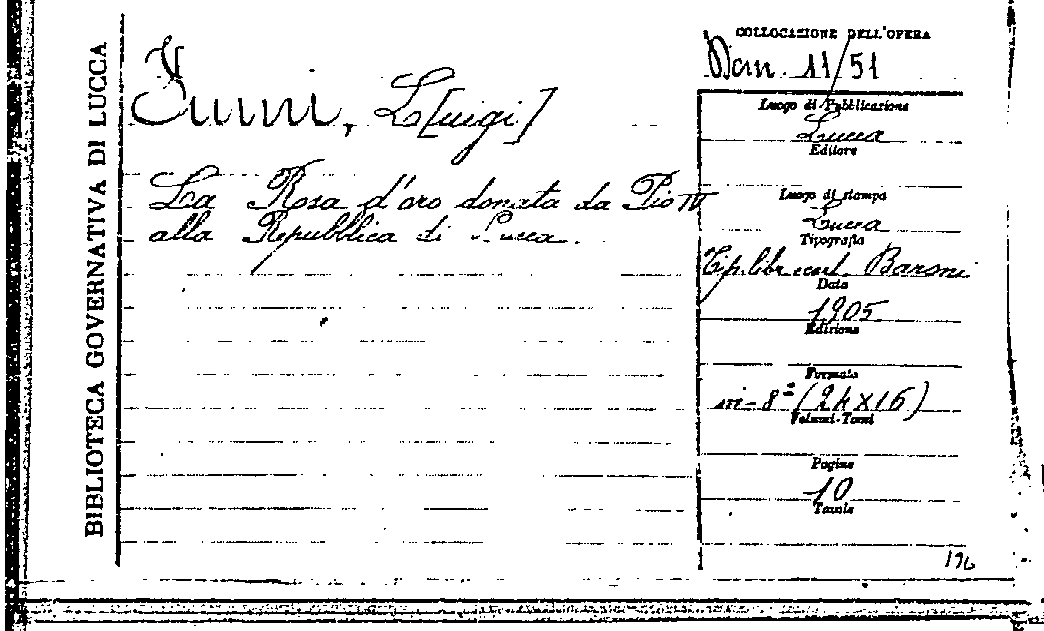 BIBLIOTECA GOVERNATIVA DI LUCCA
Fumi, L[uigi]
La Rosa d'oro donata da Pio IV
alla Repubblica di Lucca.
COLLOCAZIONE DELL'OPERA
Dom. 11/51
Luogo di Pubblicazione
Lucca
Editore
Luogo di stampa
Lucca
Tipografia
Tip. libr. cart. Baroni
Data
1905
Edizione
Formato
in-8° (24x16)
Volumi-Tomi
Pagine
10
Tavole
196